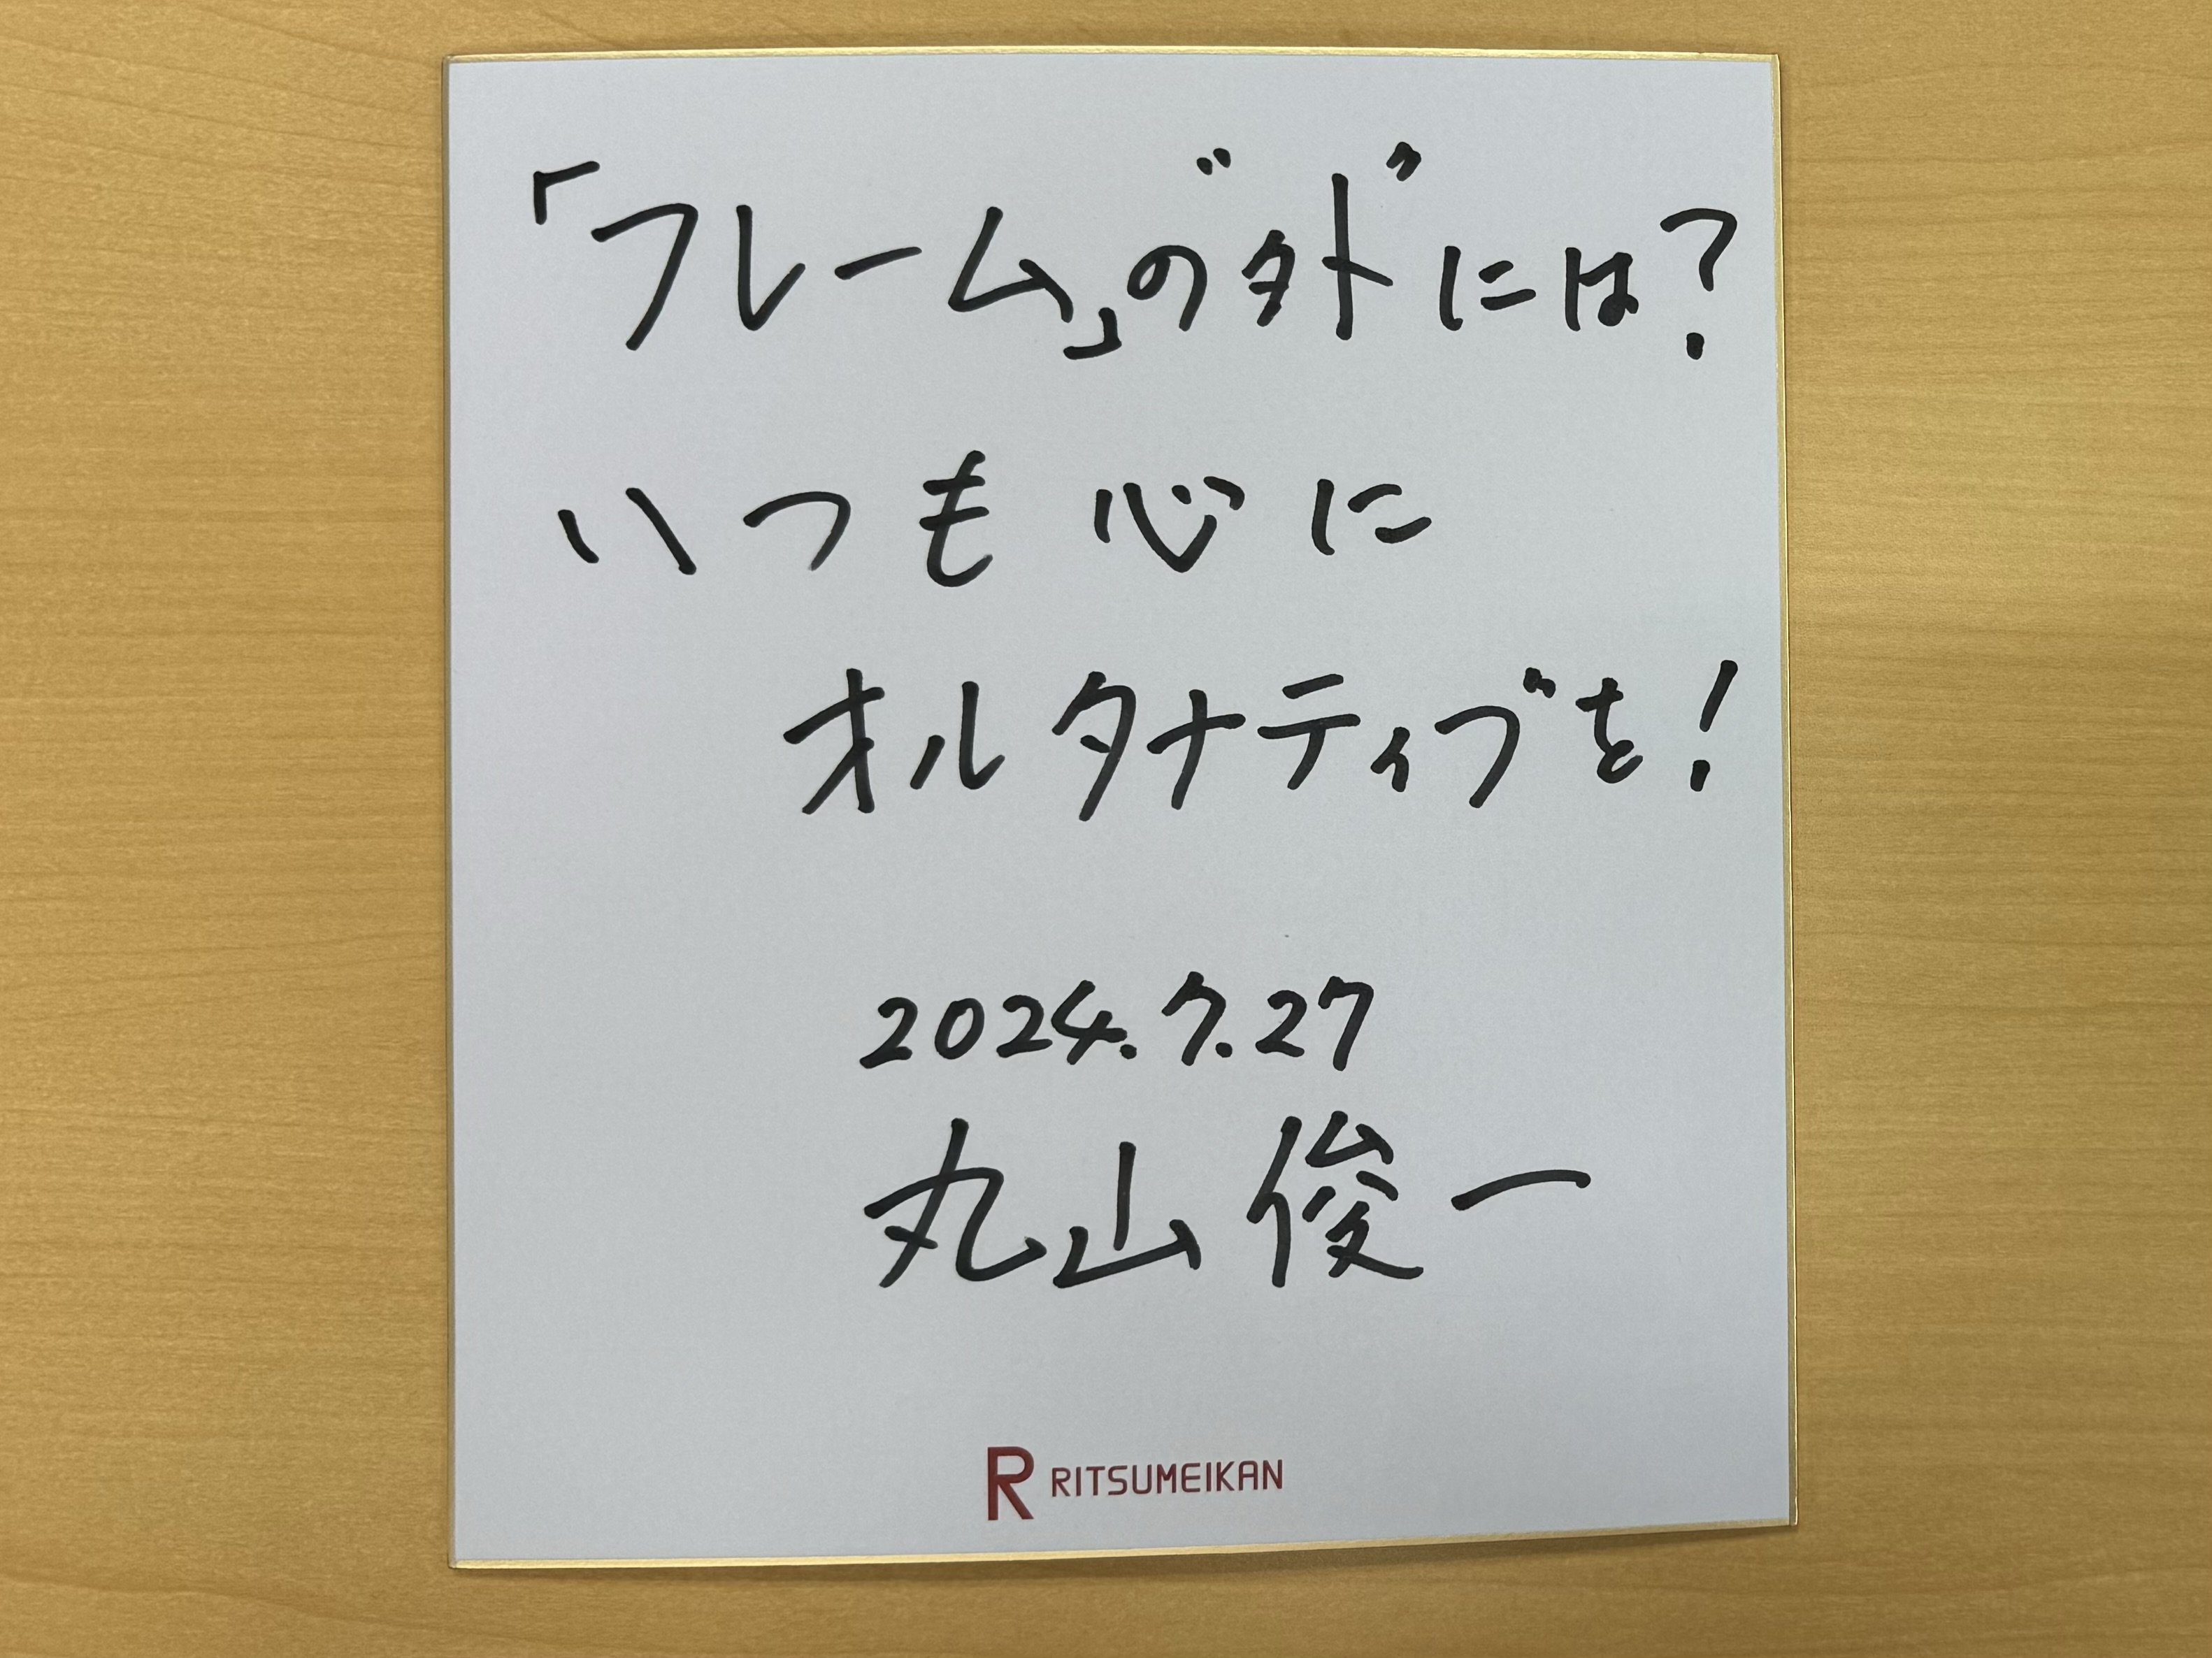 「フレーム」の“外”には?
いつも心に
オルタナティブを!
2024.7.27
丸山俊一
R RITSUMEIKAN